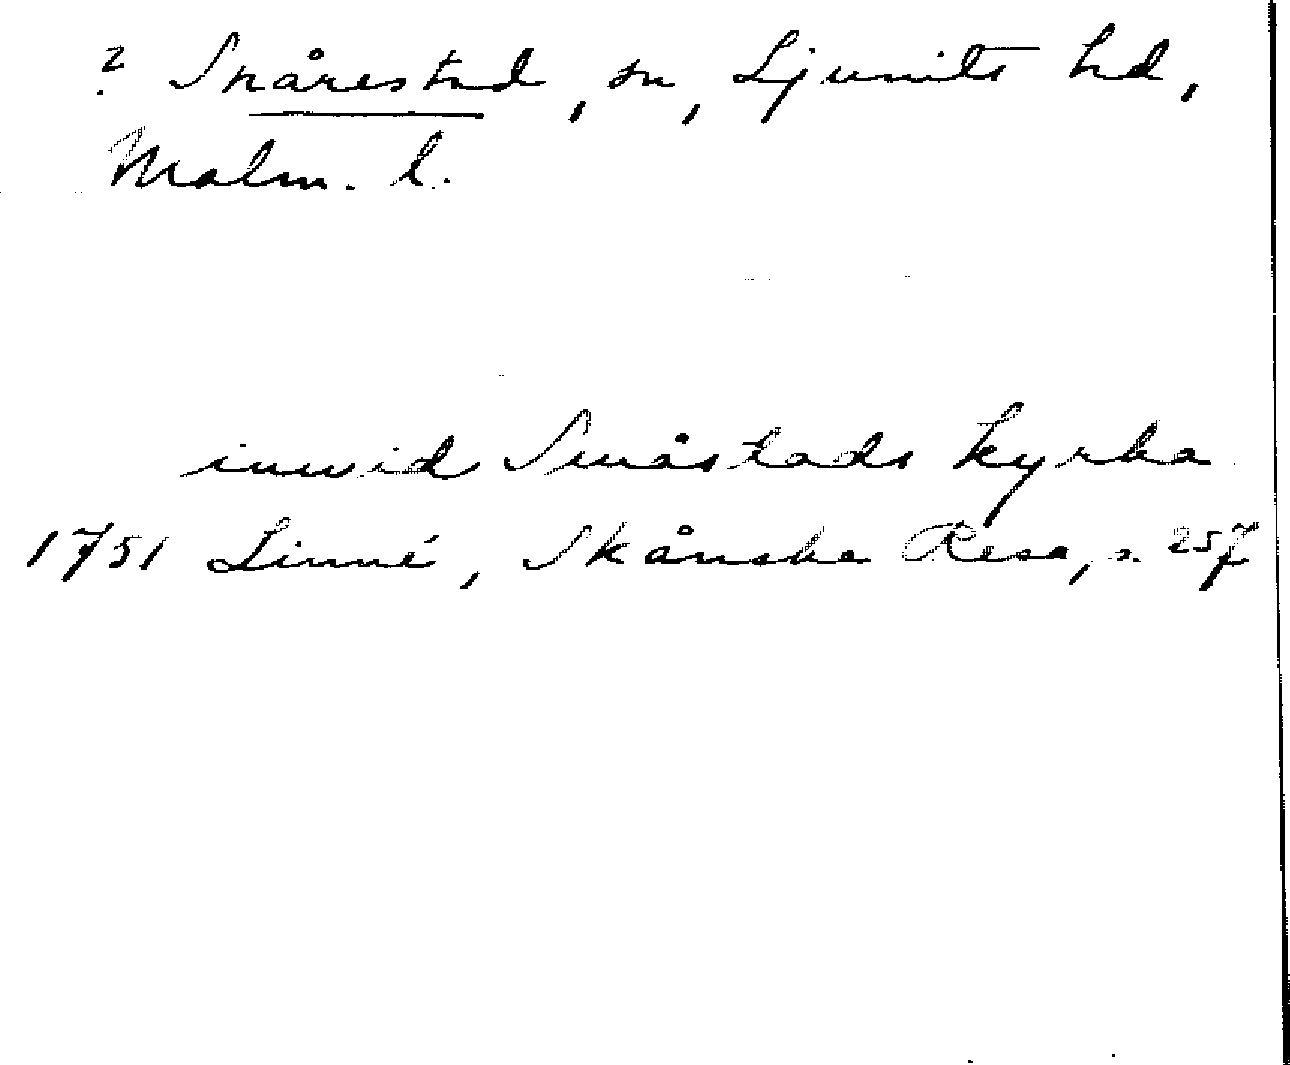 ? Snårestad, sn, Ljunits hd,
Malm. l.
inwid Småstads kyrka
1751 Linné, Skånska Resa, s. 257